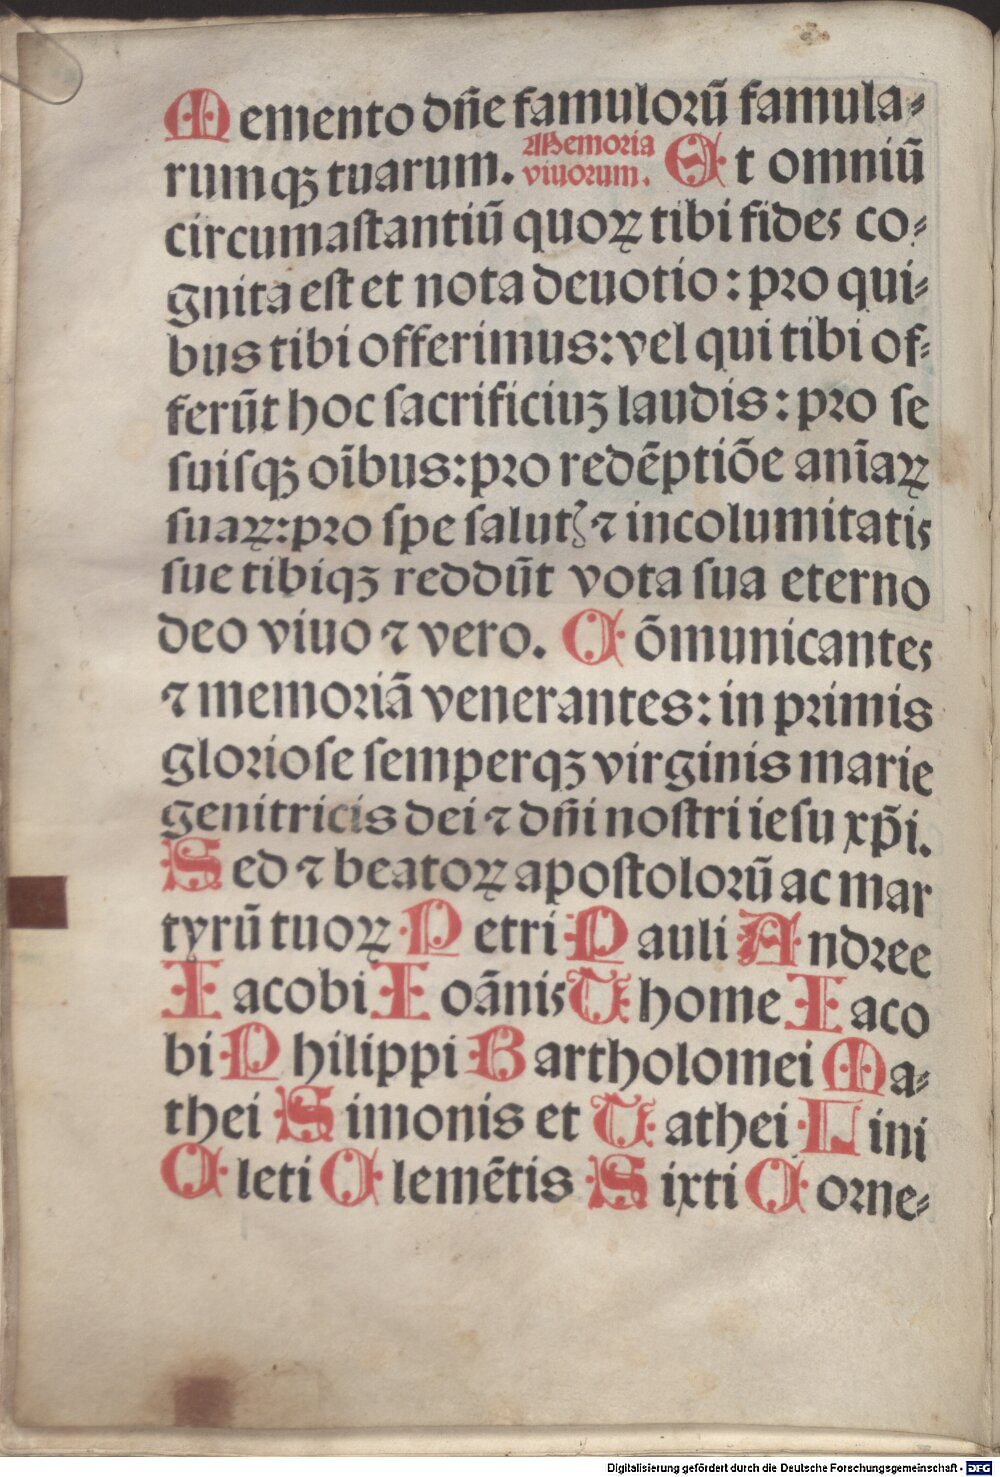 Memento dn̄e famulorū famula⸗
rumqꝫ tuarum. Memoria viuorum. Et omniū
circumastantiū quoꝝ tibi fides co⸗
gnita est et nota deuotio: pro qui⸗
bus tibi offerimus: vel qui tibi of⸗
ferūt hoc sacrificiuꝫ laudis: pro se
suisqꝫ oībus: pro redēptiōe anīaꝝ
suaꝝ: pro spe salutꝭ ⁊ incolumitatis
sue tibiqꝫ reddūt vota sua eterno
deo viuo ⁊ vero. Cōmunicantes
⁊ memoriā venerantes: in primis
gloriose semperqꝫ virginis marie
genitricis dei ⁊ dn̄i nostri iesu xp̄i.
Sed ⁊ beatoꝝ apostolorū ac mar
tyrū tuoꝝ Petri Pauli Andree
Iacobi Ioānis Thome Iaco
bi Philippi Bartholomei Ma⸗
thei Simonis et Tathei Lini
Cleti Clemētis Sixti Corne⸗
Digitalisierung gefördert durch die Deutsche Forschungsgemeinschaft - DFG